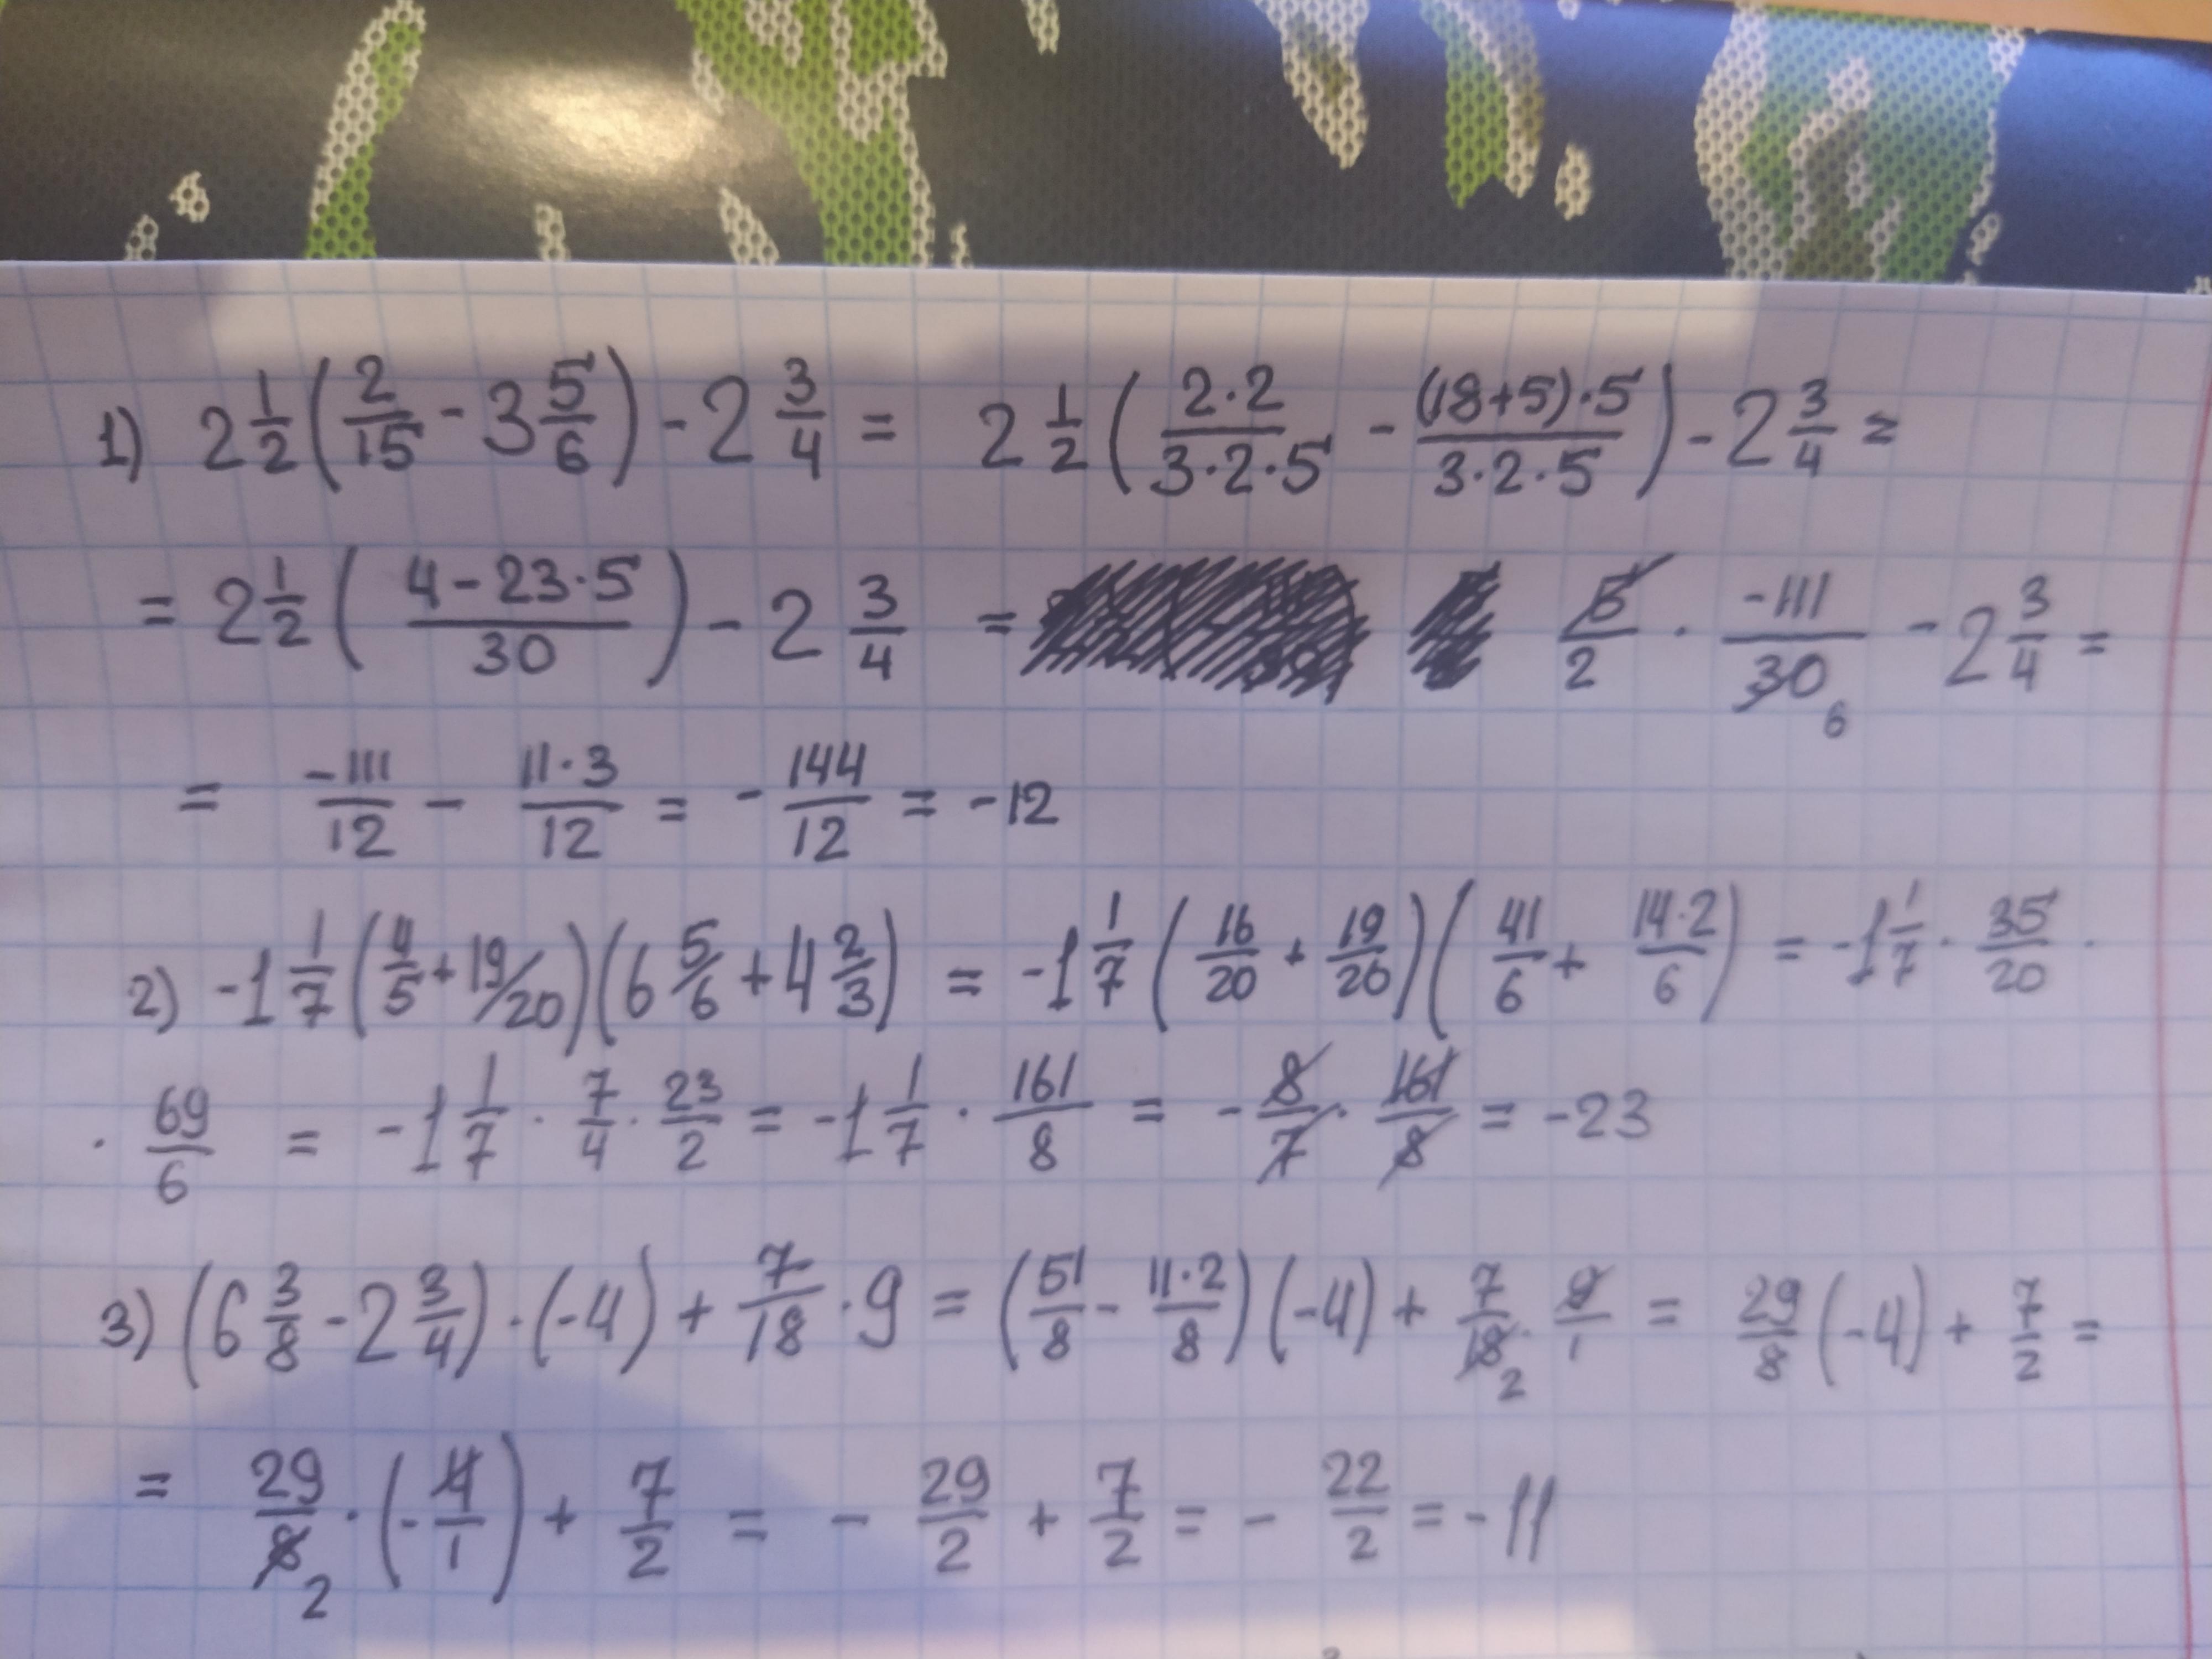 1) 2 1/2 (2/15 - 3 5/6) - 2 3/4 = 2 1/2 (2·2/3·2·5 - (18+5)·5/3·2·5) - 2 3/4 =
= 2 1/2 (4-23·5/30) - 2 3/4 = 5/2 · -111/30 6 - 2 3/4 =
= -111/12 - 11·3/12 = - 144/12 = -12
2) -1 1/7 (4/5 + 19/20)(6 5/6 + 4 2/3) = -1 1/7 (16/20 + 19/20)(41/6 + 14·2/6) = -1 1/7 · 35/20 ·
· 69/6 = -1 1/7 · 7/4 · 23/2 = -1 1/7 · 161/8 = - 8/7 · 161/8 = -23
3) (6 3/8 - 2 3/4) · (-4) + 7/18 · 9 = (51/8 - 11·2/8)(-4) + 7/18 2 · 9/1 = 29/8 (-4) + 7/2 =
= 29/8 2 · (- 4/1) + 7/2 = - 29/2 + 7/2 = - 22/2 = -11